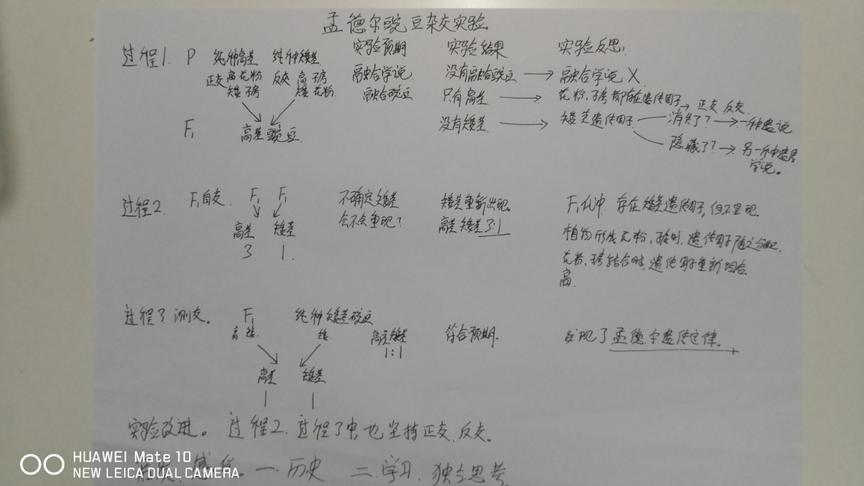 孟德尔豌豆杂交实验
过程1. P 纯种高茎 纯种矮茎 实验预期 实验结果 实验反思:
正交 高花粉 反交 高子房 融合学说 没有融合豌豆 → 融合学说 X
矮子房 矮花粉 融合豌豆 只有高茎 → 花粉、子房都有遗传因子 → 正交 反交
F₁ 高茎豌豆 没有矮茎 → 矮茎遗传因子 消失了? → 一种学说
隐藏了? → 另一种
学说。
过程2. F₁自交. F₁ F₁ 不确定矮茎 矮茎重新出现 F₁代中 存在矮茎遗传因子,但不呈现
高茎 矮茎 会不会重现? 高茎矮茎3:1 植物形成花粉、时,遗传因子随之分配
3 1 花粉、结合时,遗传因子重新组合
离
过程3 测交。 F₁ 纯种矮茎豌豆
高 矮 矮 高茎矮茎 符合预期. 发现了孟德尔遗传定律.
1:1
高茎 矮茎
1 1
实验改进。 过程2. 过程3中,也坚持正交,反交。
一. 历史 二. 学习. 独立思考
HUAWEI Mate 10
NEW LEICA DUAL CAMERA